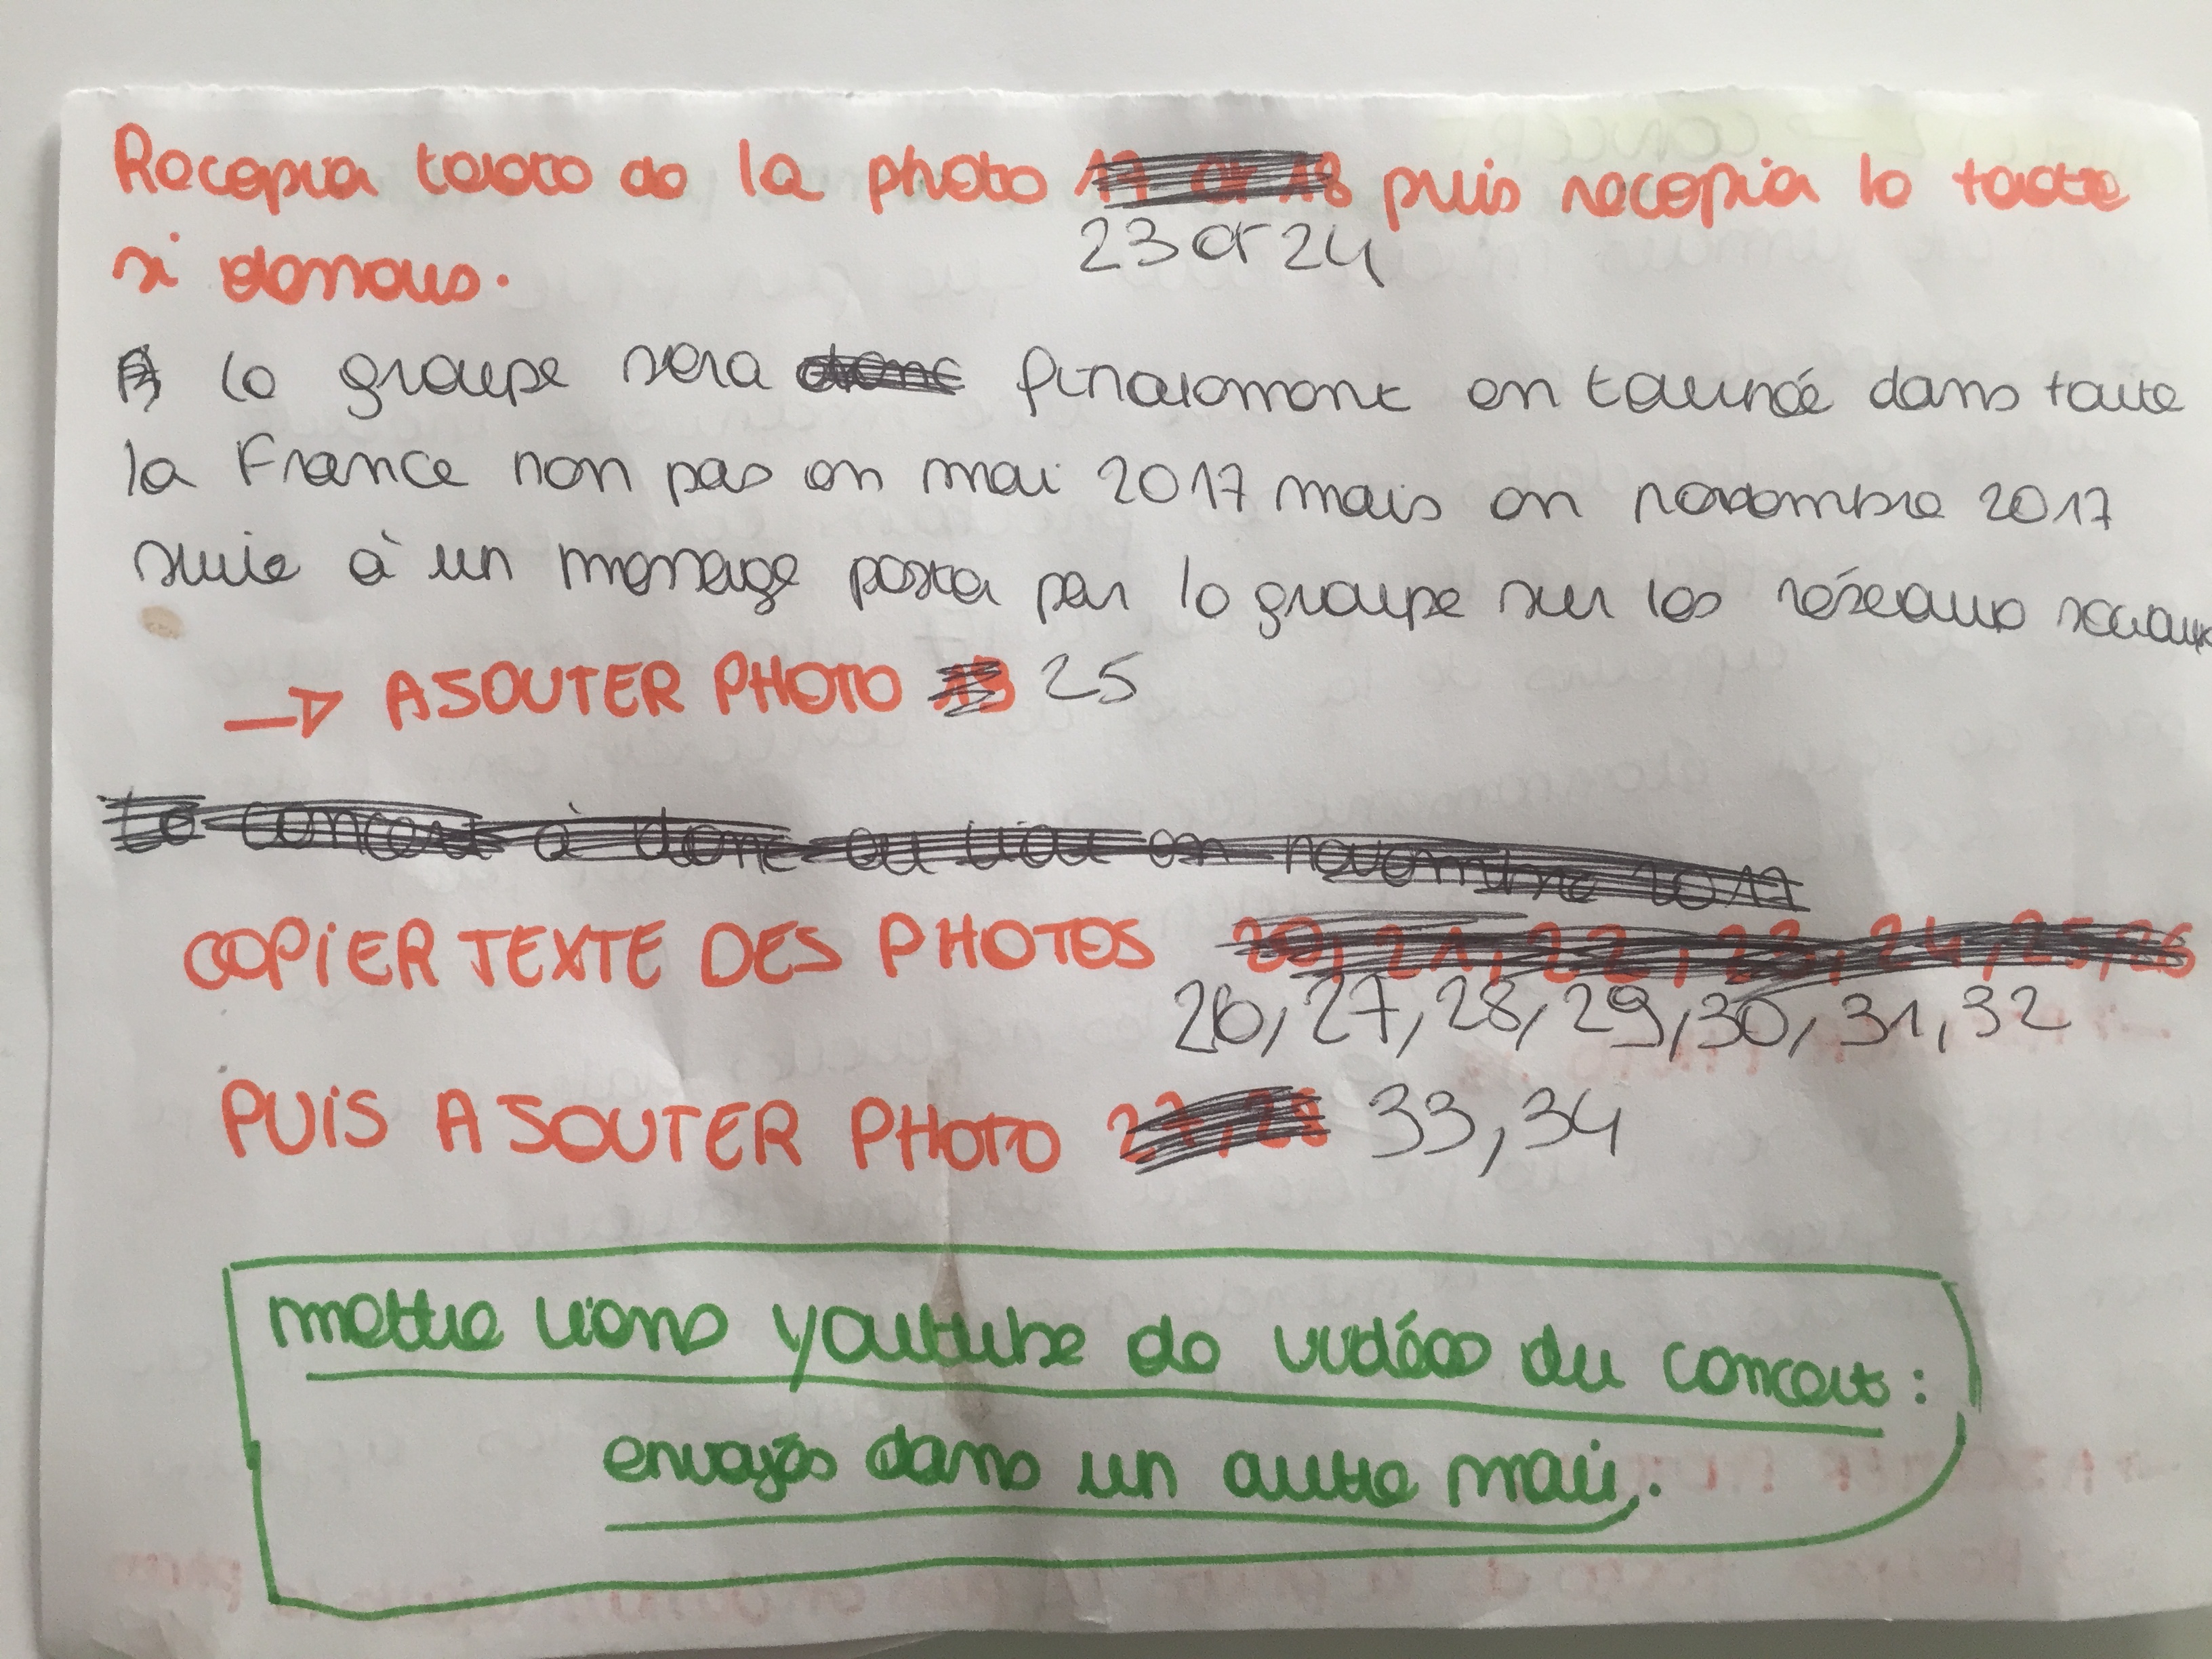 Recopier texte de la photo puis recopier le texte
23 et 24
si dessous.
le groupe sera finalement en tournée dans toute
la France non pas en mai 2017 mais en novembre 2017
suite à un message poster par le groupe sur les réseaux sociaux
→ AJOUTER PHOTO 25
COPIER TEXTE DES PHOTOS
26, 27, 28, 29, 30, 31, 32
PUIS AJOUTER PHOTO 33, 34
mettre liens youtube de vidéos du concert :
envoyés dans un autre mail.